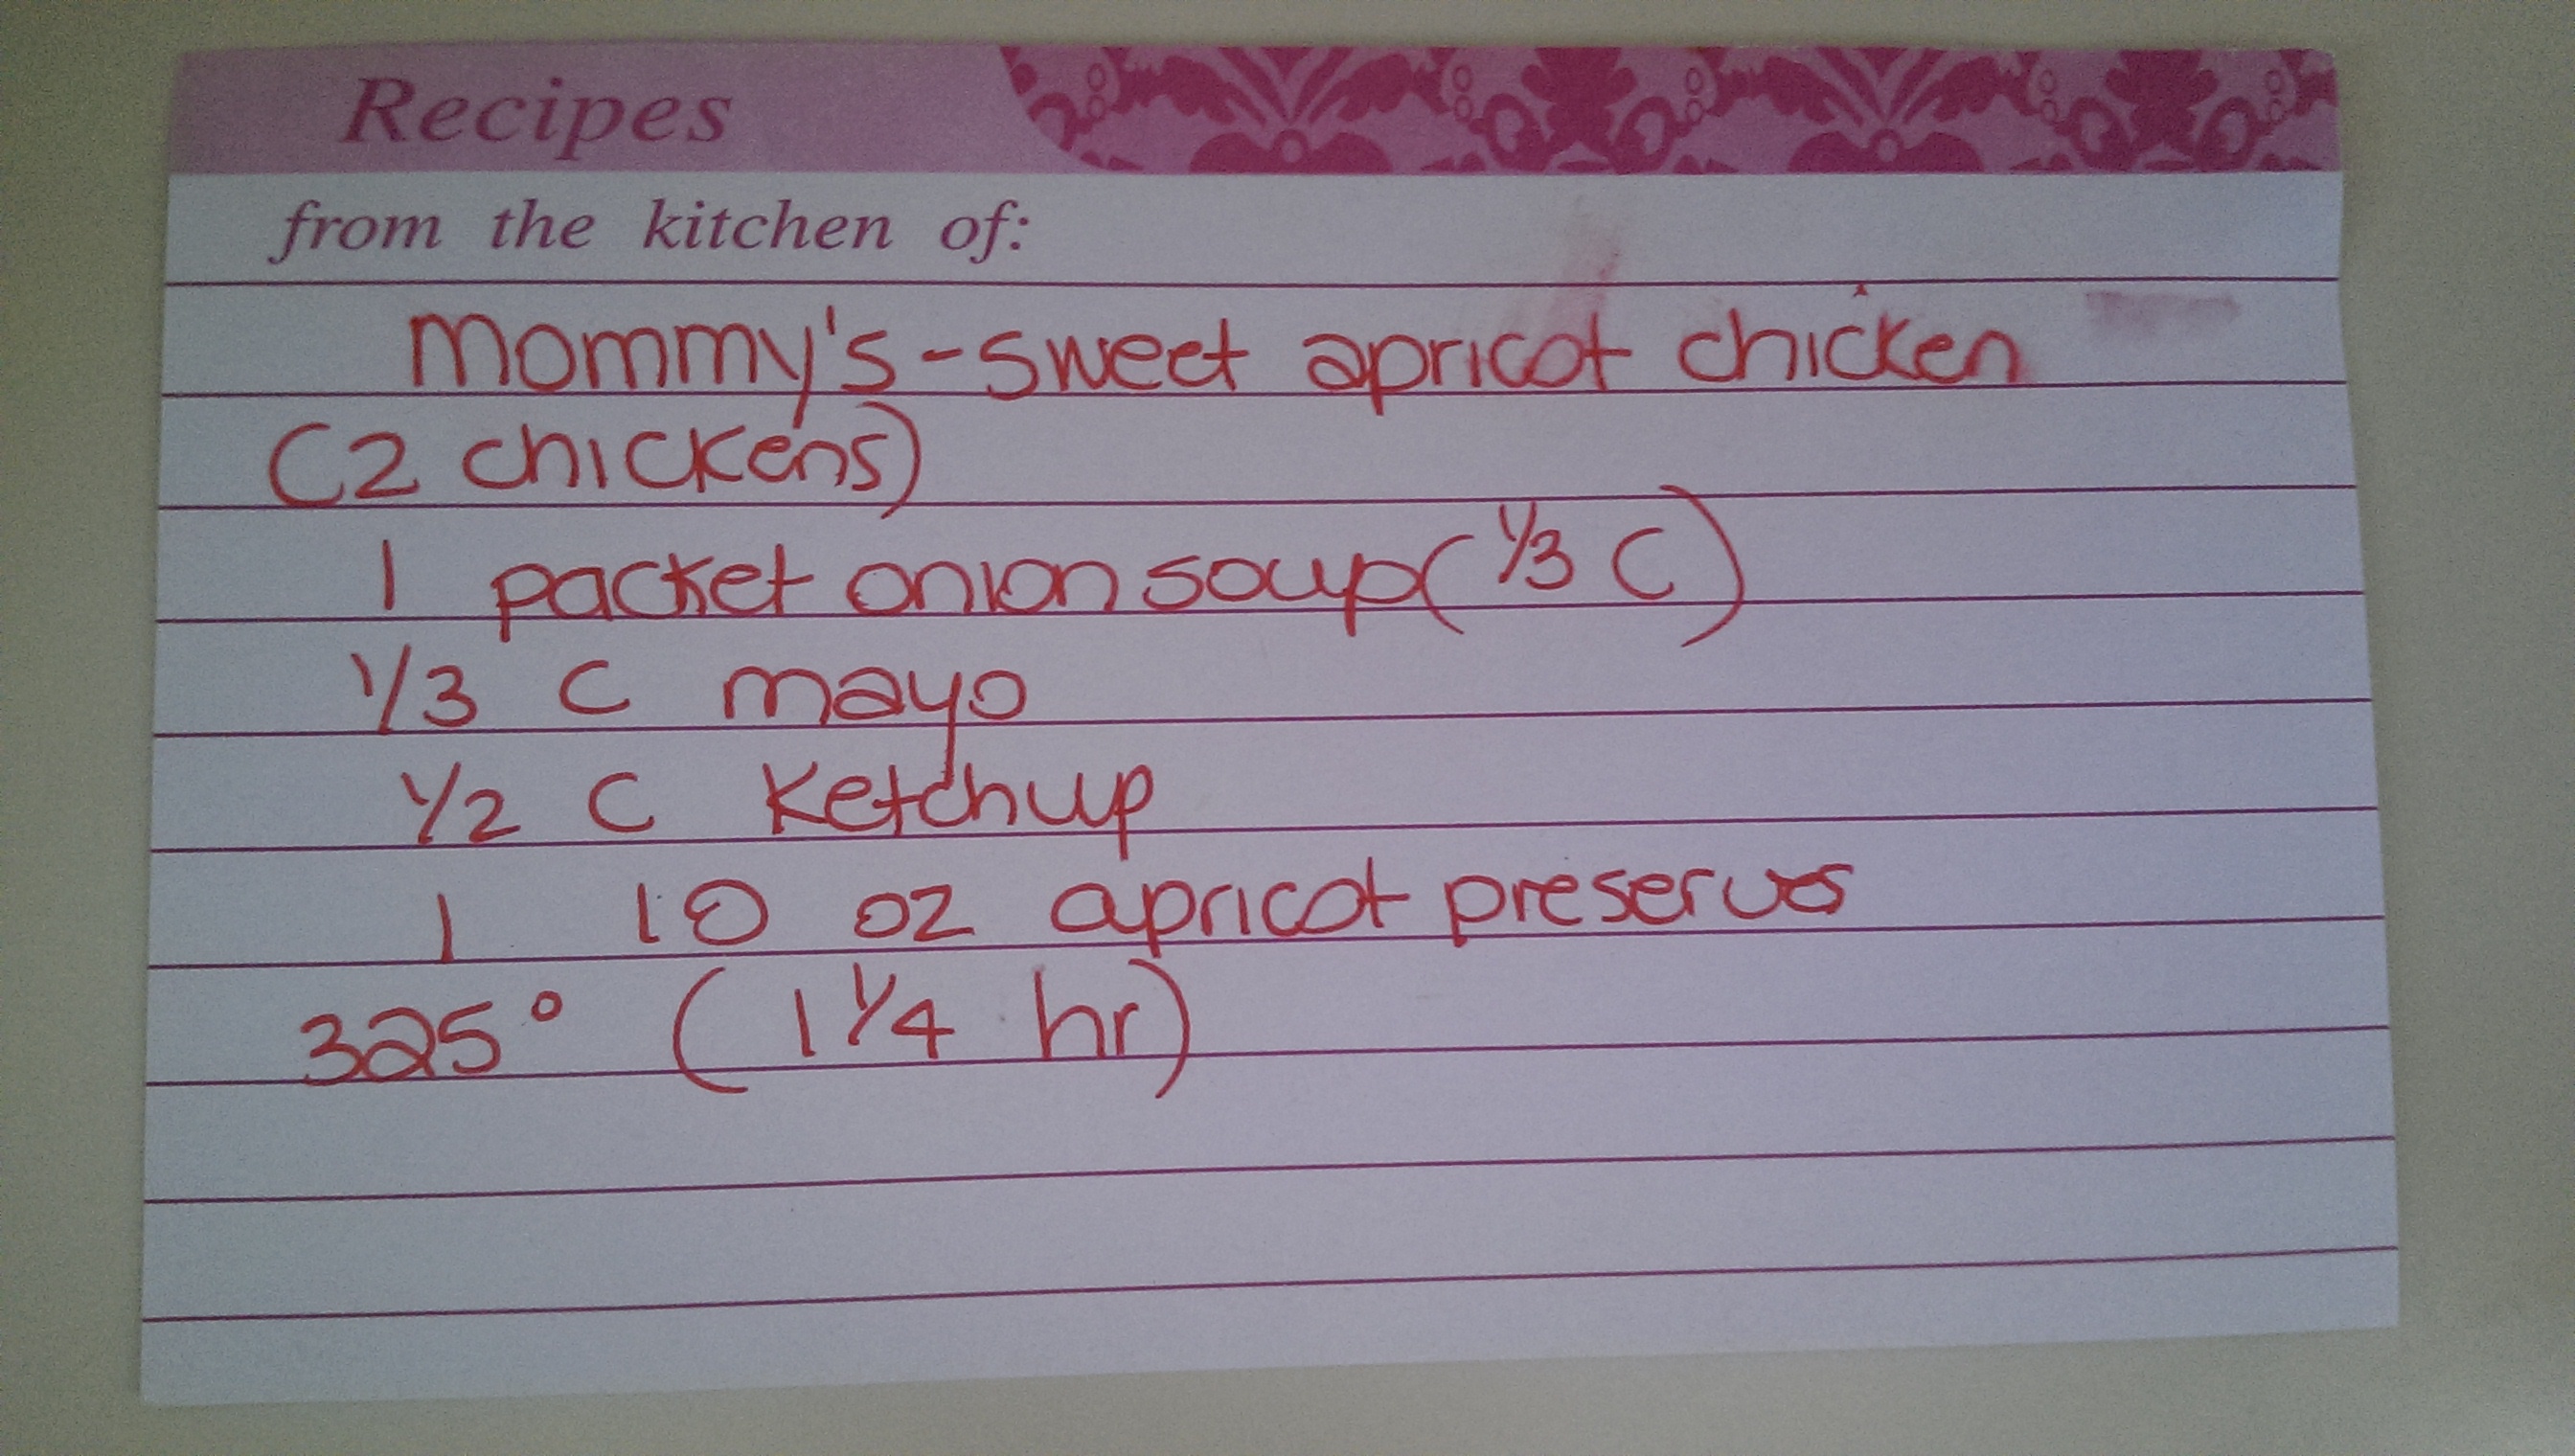 Recipes
from the kitchen of:
Mommy's - sweet apricot chicken
(2 chickens)
1 packet onion soup (1/3 C)
1/3 C mayo
1/2 C Ketchup
1 10 oz apricot preserves
325° (1 1/4 hr)